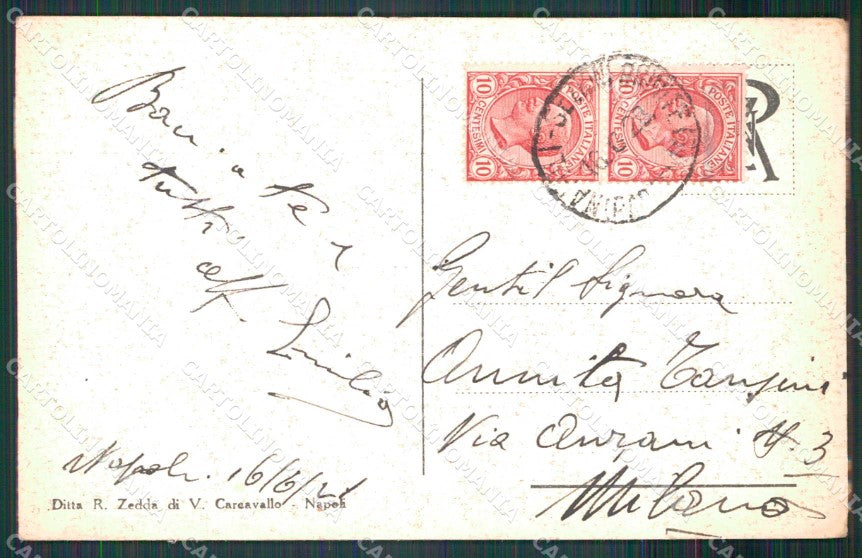 Baci a te e
tutti
aff.
Emilio
Napoli. 16/6/21
Ditta R. Zedda di V. Carcavallo - Napoli
10 CENTESIMI 10
POSTE ITALIANE
10 CENTESIMI 10
POSTE ITALIANE
R
Gentil Signora
Annita Tansini
Via Anzani N. 3
Milano
CARTOLINOMANIA